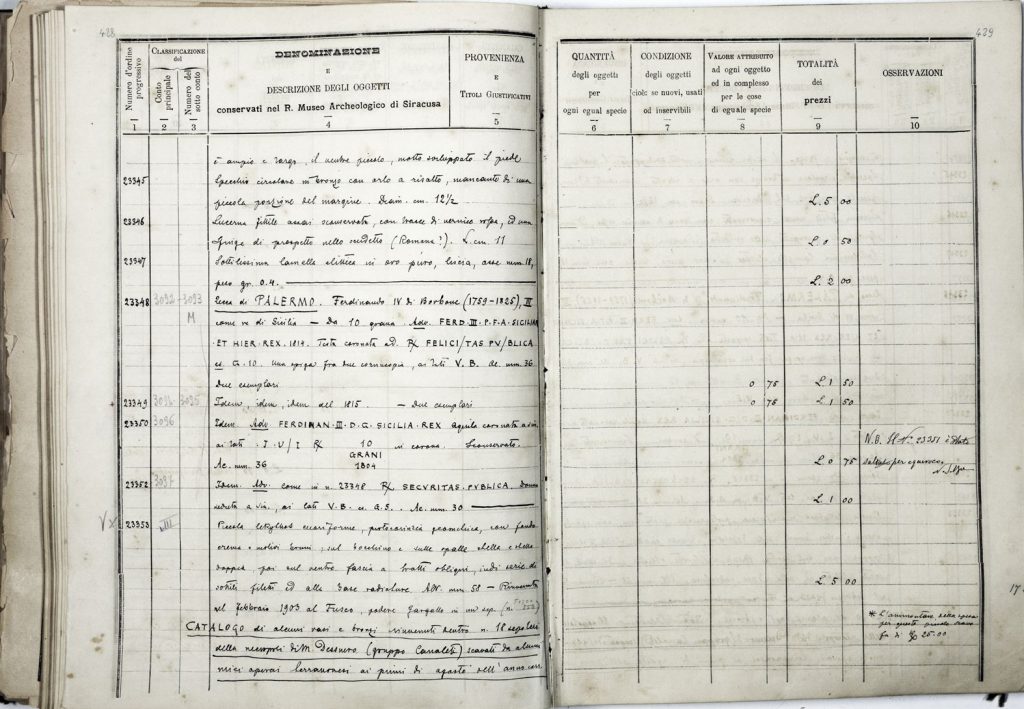 428
Numero d'ordine progressivo
CLASSIFICAZIONE del
Conto principale
Numero del sotto conto
DENOMINAZIONE
E
DESCRIZIONE DEGLI OGGETTI
conservati nel R. Museo Archeologico di Siracusa
PROVENIENZA
E
TITOLI GIUSTIFICATIVI
1 2 3 4 5
è ampio e largo, il ventre piccolo, molto sviluppato il piede
23345 Specchio circolare in bronzo con orlo a risalto, mancante di una
piccola porzione del margine. Diam. cm. 12½
23346 Lucerna fittile assai sconservata, con tracce di vernice rossa, ed una
sfinge di prospetto nello scudetto (Romana?). L. cm. 11
23347 Sottilissima lamella ellittica in oro puro, liscia, asse mm. 18,
peso gr. 0.4.
23348 3092-3093 Zecca di PALERMO. Ferdinando IV di Borbone (1759-1825), III
M come re di Sicilia — Da 10 grana. Adv. FERD.III.P.F.A.SICILIAR
.ET HIER.REX.1814. Testa coronata a d. ℞ FELICI/TAS.PV/BLICA
G. 10. Una spiga fra due cornucopie, ai lati V.B. Ae. mm. 36
Due esemplari
23349 3094-3095 Idem, idem, idem del 1815. — Due esemplari
23350 3096 Idem. Adv. FERDINAN.III.D.G.SICILIA.REX aquila coronata a sin.
ai lati .I.V/I ℞ 10 in corona. Sconservato.
GRANI
Ae. mm. 36 1804
23352 3097 Idem. Adv. come in n. 23348 ℞ SECVRITAS.PVBLICA. Donna
seduta a sin., ai lati V.B. Ae. mm. 30
Vx 23353 Piccola lekythos cuoriforme, protocorinzia geometrica, con fondo
crema e motivi bruni; sul bocchino e sulle spalle stella e stella
doppia, poi sul ventre fascia a tratti obliqui, indi serie di
sottili filetti ed alla base radiature. Alt. mm. 58 — Rinvenuta
nel febbraio 1903 al Fusco, podere Gargallo in un sep.
CATALOGO di alcuni vasi e bronzi rinvenuti dentro n. 18 sepolcri
della necropoli di M. Dessueri (gruppo Canalotti) scavati da alcuni
miei operai terranovesi ai primi di agosto dell'anno corr.
439
QUANTITÀ
degli oggetti
per
ogni egual specie
CONDIZIONE
degli oggetti
cioè: se nuovi, usati
od inservibili
VALORE ATTRIBUTO
ad ogni oggetto
ed in complesso
per le cose
di eguale specie
TOTALITÀ
dei
prezzi
OSSERVAZIONI
6 7 8 9 10
L. 5 00
L. 0 50
L. 2 00
0 75 L. 1 50
0 75 L. 1 50
N.B. Il N.º 23351 è stato
L. 0 75 saltato per equivoco.
L. 1 00
L. 5 00
17
* L'ammontare della spesa
per questo piccolo scavo
fu di L. 25.00